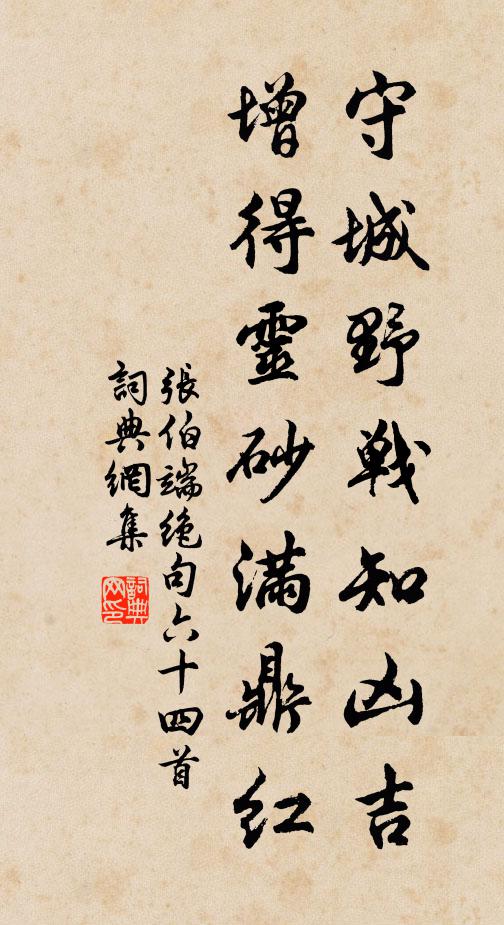 守城野戰知凶吉
增得靈砂滿鼎紅
張伯端絕句六十四首
詞典網集
詞典
网印